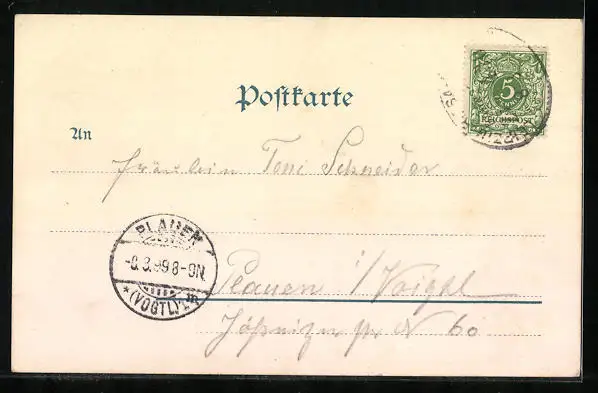 Postkarte
5
PFENNIG
REICHSPOST
An
Fräulein Toni Schneider
PLAUEN
-8.3.99 8-9N.
*(VOGTL)2 m
Plauen i/Voigtl
Jößnitzer str N 60